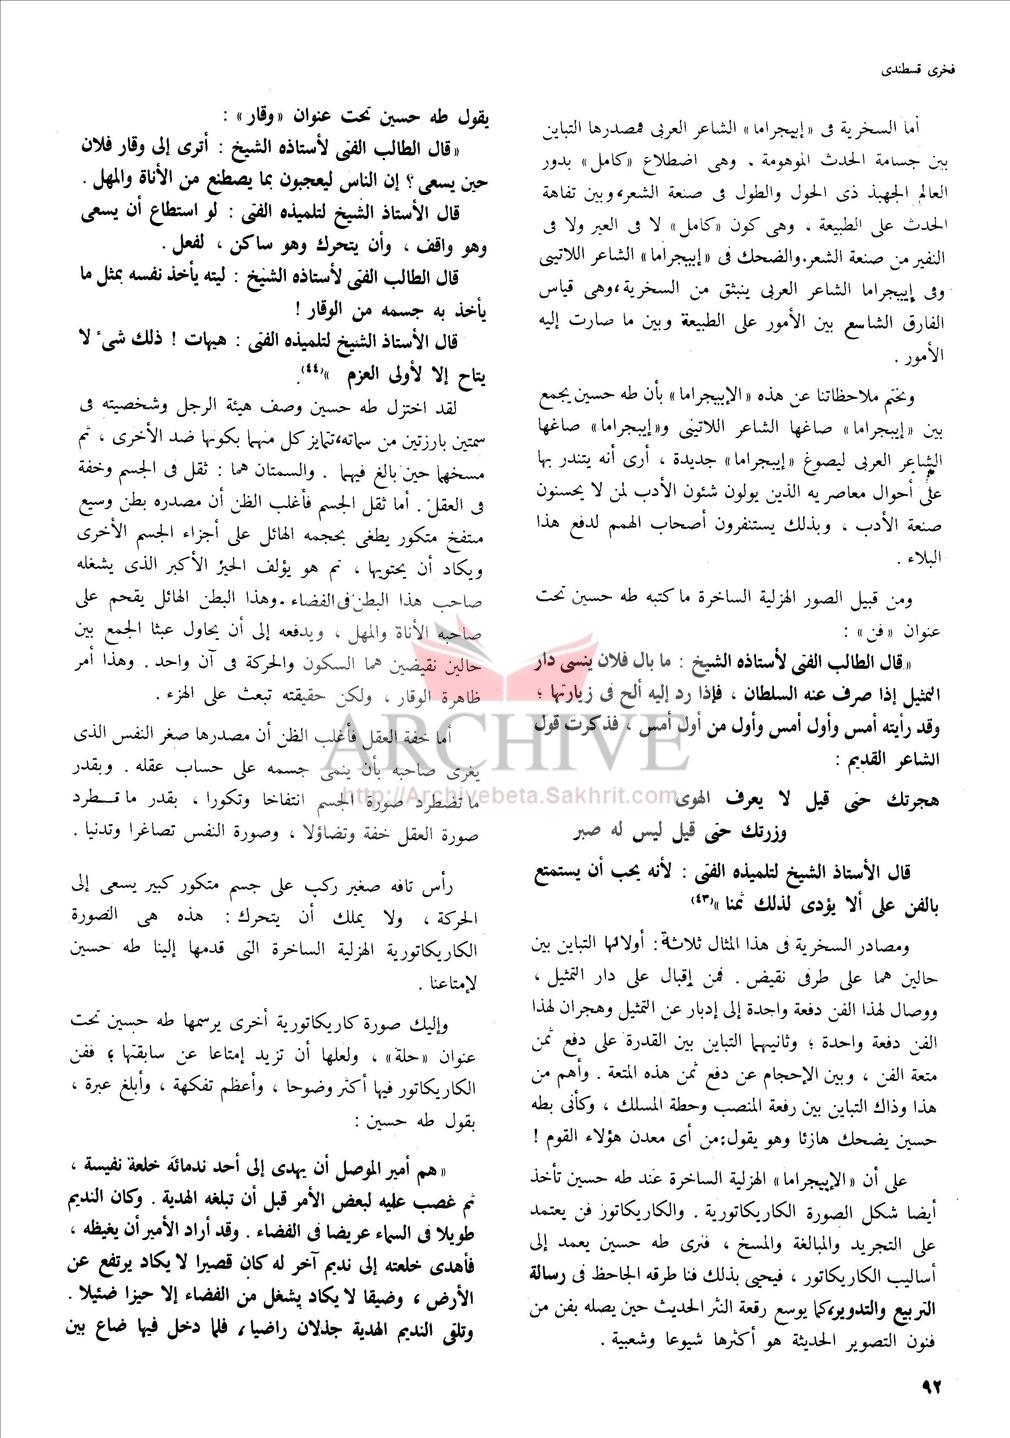 فخرى قسطندى
أما السخرية فى «إبيجراما» الشاعر العربى فمصدرها التباين
بين جسامة الحدث الموهومة . وهى اضطلاع «كامل» بدور
العالم الجهبذ ذى الحول والطول فى صنعة الشعر، وبين تفاهة
الحدث على الطبيعة ، وهى كون «كامل» لا فى العير ولا فى
النفير من صنعة الشعر. والضحك فى «إبيجراما» الشاعر اللاتينى
وفى إبيجراما الشاعر العربى ينبثق من السخرية، وهى قياس
الفارق الشاسع بين الأمور على الطبيعة وبين ما صارت إليه
الأمور .
ونختم ملاحظاتنا عن هذه «الإبيجراما» بأن طه حسين يجمع
بين «إبيجراما» صاغها الشاعر اللاتينى و«إبيجراما» صاغها
الشاعر العربى ليصوغ «إبيجراما» جديدة ، أرى أنه يتندر بها
على أحوال معاصريه الذين يولون شئون الأدب لمن لا يحسنون
صنعة الأدب ، وبذلك يستنفرون أصحاب الهمم لدفع هذا
البلاء .
ومن قبيل الصور الهزلية الساخرة ما كتبه طه حسين تحت
عنوان «فن» :
«قال الطالب الفتى لأستاذه الشيخ : ما بال فلان ينسى دار
التمثيل إذا صرف عنه السلطان ، فإذا رد إليه ألح فى زيارتها ؛
وقد رأيته أمس وأول أمس وأول من أول أمس ، فذكرت قول
الشاعر القديم :
هجرتك حتى قيل لا يعرف الهوى
وزرتك حتى قيل ليس له صبر
قال الأستاذ الشيخ لتلميذه الفتى : لأنه يحب أن يستمتع
بالفن على ألا يؤدى لذلك ثمنا »(٤٣)
ومصادر السخرية فى هذا المثال ثلاثة : أولاها التباين بين
حالين هما على طرفى نقيض . فمن إقبال على دار التمثيل ،
ووصال لهذا الفن دفعة واحدة إلى إدبار عن التمثيل وهجران لهذا
الفن دفعة واحدة ؛ وثانيهما التباين بين القدرة على دفع ثمن
متعة الفن ، وبين الإحجام عن دفع ثمن هذه المتعة . وأهم من
هذا وذاك التباين بين رفعة المنصب وحطة المسلك ، وكأنى بطه
حسين يضحك هازئا وهو يقول: من أى معدن هؤلاء القوم !
على أن «الإبيجراما» الهزلية الساخرة عند طه حسين تأخذ
أيضا شكل الصورة الكاريكاتورية . والكاريكاتور فن يعتمد
على التجريد والمبالغة والمسخ ، فنرى طه حسين يعمد إلى
أساليب الكاريكاتور ، فيحيى بذلك فنا طرقه الجاحظ فى رسالة
التربيع والتدوير، كما يوسع رقعة النثر الحديث حين يصله بفن من
فنون التصوير الحديثة هو أكثرها شيوعا وشعبية .
يقول طه حسين تحت عنوان «وقار» :
«قال الطالب الفتى لأستاذه الشيخ : أترى إلى وقار فلان
حين يسعى ؟ إن الناس ليعجبون بما يصطنع من الأناة والمهل .
قال الأستاذ الشيخ لتلميذه الفتى : لو استطاع أن يسعى
وهو واقف ، وأن يتحرك وهو ساكن ، لفعل .
قال الطالب الفتى لأستاذه الشيخ : ليته يأخذ نفسه بمثل ما
يأخذ به جسمه من الوقار !
قال الأستاذ الشيخ لتلميذه الفتى : هيهات ! ذلك شىء لا
يتاح إلا لأولى العزم »(٤٤).
لقد اختزل طه حسين وصف هيئة الرجل وشخصيته فى
سمتين بارزتين من سماته، تتمايز كل منهما بكونها ضد الأخرى ، ثم
مسخها حين بالغ فيهما . والسمتان هما : ثقل فى الجسم وخفة
فى العقل . أما ثقل الجسم فأغلب الظن أن مصدره بطن وسيع
منتفخ متكور يطغى بحجمه الهائل على أجزاء الجسم الأخرى
ويكاد أن يحتويها ، ثم هو يؤلف الحيز الأكبر الذى يشغله
صاحب هذا البطن فى الفضاء . وهذا البطن الهائل يقحم على
صاحبه الأناة والمهل ، ويدفعه إلى أن يحاول عبثا الجمع بين
حالين نقيضين هما السكون والحركة فى آن واحد . وهذا أمر
ظاهرة الوقار ، ولكن حقيقته تبعث على الهزء .
أما خفة العقل فأغلب الظن أن مصدرها صغر النفس الذى
يغرى صاحبه بأن ينمى جسمه على حساب عقله . وبقدر
ما تضطرد صورة الجسم انتفاخا وتكورا ، بقدر ما تـطرد
صورة العقل خفة وتضاؤلا ، وصورة النفس تصاغرا وتدنيا .
رأس تافه صغير ركب على جسم متكور كبير يسعى إلى
الحركة ، ولا يملك أن يتحرك : هذه هى الصورة
الكاريكاتورية الهزلية الساخرة التى قدمها إلينا طه حسين
لإمتاعنا .
وإليك صورة كاريكاتورية أخرى يرسمها طه حسين تحت
عنوان «حلة» ، ولعلها أن تزيد إمتاعا عن سابقتها ؛ ففن
الكاريكاتور فيها أكثر وضوحا ، وأعظم تفكهة ، وأبلغ عبرة ،
يقول طه حسين :
«هم أمير الموصل أن يهدى إلى أحد ندمائه خلعة نفيسة ،
ثم غصب عليه لبعض الأمر قبل أن تبلغه الهدية . وكان النديم
طويلا فى السماء عريضا فى الفضاء . وقد أراد الأمير أن يغيظه ،
فأهدى خلعته إلى نديم آخر له كان قصيرا لا يكاد يرتفع عن
الأرض ، وضيقا لا يكاد يشغل من الفضاء إلا حيزا ضئيلا .
وتلقى النديم الهدية جذلان راضيا ، فلما دخل فيها ضاع بين
٩٢
ARCHIVE
http://Archivebeta.Sakhrit.com